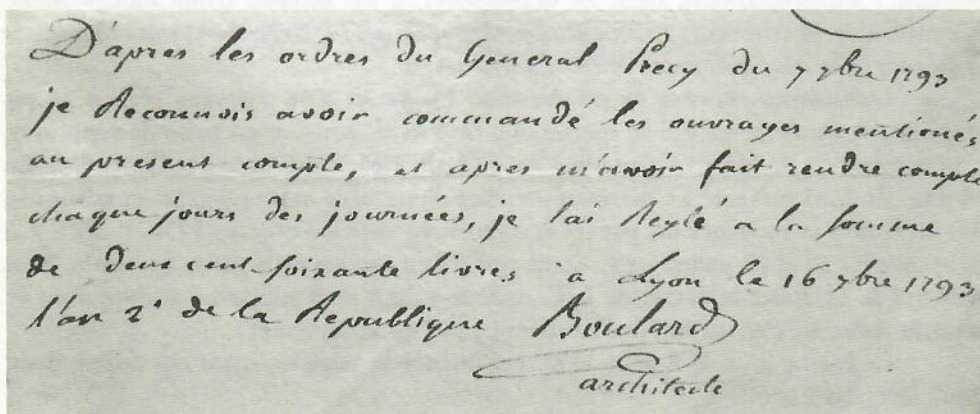 D'apres les ordres du General Precy du 7 7bre 1793
je Reconnois avoir commandé les ouvrages mentionés
au present compte, et apres m'avoir fait rendre compte
chaque jours des journées, je l'ai Reglé a la somme
de deux cent soixante livres a Lyon le 16 7bre 1793
l'an 2e de la Republique Boulard
architecte